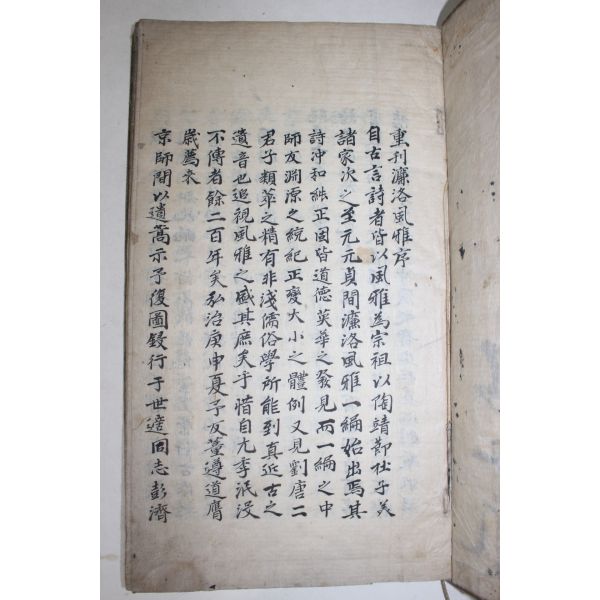 重刊濂洛風雅序
自古言詩者皆以風雅為宗祖以陶靖節杜子美
諸家次之至元元貞間濂洛風雅一編始出焉其
詩冲和純正固皆道德英華之發見而一編之中
師友淵源之統紀正變大小之體例又見劉唐二
君子類萃之精有非淺儒俗學所能到真近古之
遺音也追視風雅之盛其庶矣乎惜自元季泯沒
不傳者餘二百年矣弘治庚申夏予友董遵道膺
歲薦來
京師間以遺藁示予復圖鋟行于世適同志彭濟